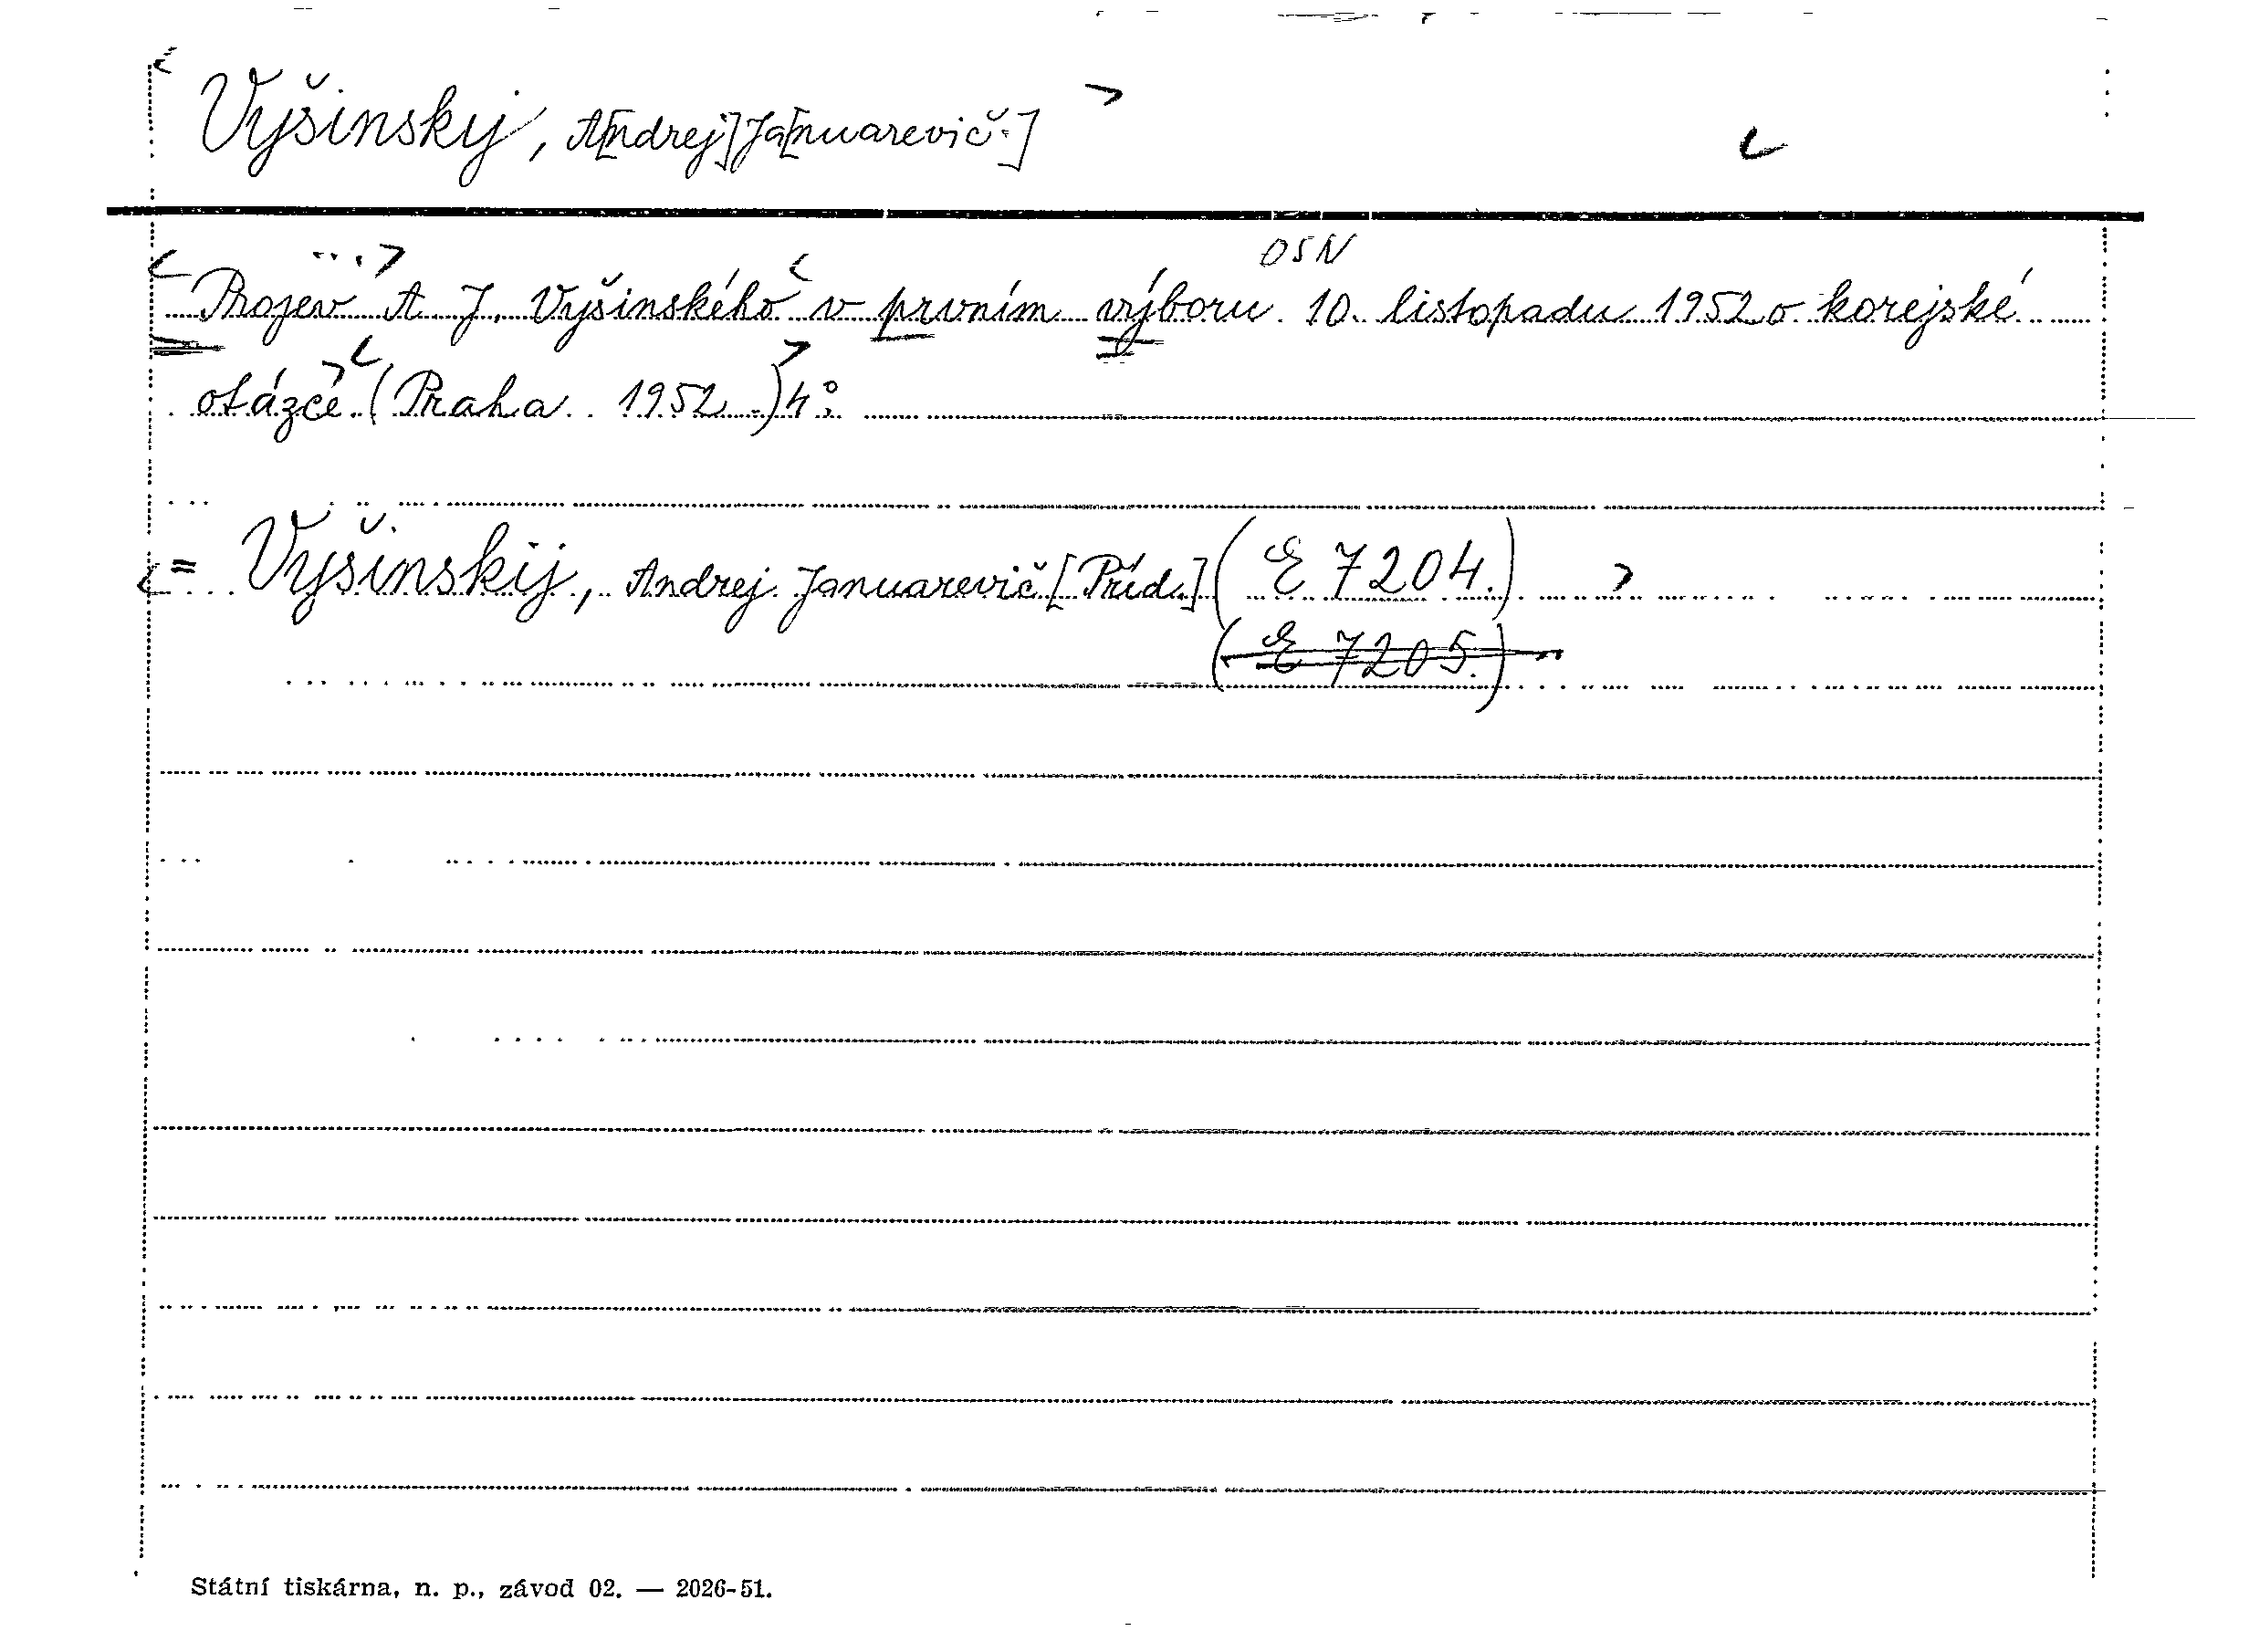 Vyšinskij, A[ndrej] Ja[nuarevič.]
OSN
Projev A. J. Vyšinského v prvním výboru 10. listopadu 1952 o korejské
otázce. (Praha 1952.) 4°.
= Vyšinskij, Andrej Januarevič [Příd.] (E 7204.)
(E 7205.)
Státní tiskárna, n. p., závod 02. — 2026-51.